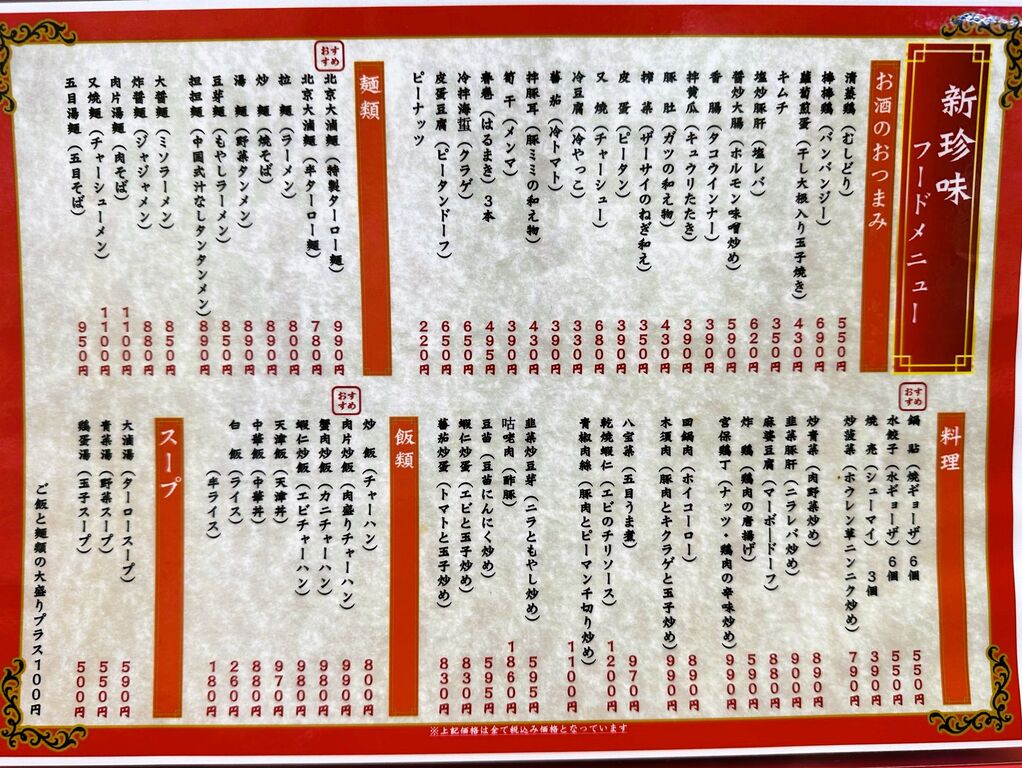 新珍味
フードメニュー
お酒のおつまみ
清蒸鶏(むしどり) 550円
棒棒鶏(バンバンジー) 690円
蘿蔔煎蛋(干し大根入り玉子焼き) 430円
キムチ 350円
塩炒豚肝(塩レバ) 620円
醤炒大腸(ホルモン味噌炒め) 590円
香腸(タコウインナー) 390円
拌黄瓜(キュウリたたき) 390円
豚肚(ガツの和え物) 430円
搾菜(ザーサイのねぎ和え) 350円
皮蛋(ピータン) 390円
叉焼(チャーシュー) 680円
冷豆腐(冷やっこ) 330円
蕃茄(冷トマト) 390円
拌豚耳(豚ミミの和え物) 430円
筍干(メンマ) 390円
春巻(はるまき)3本 495円
冷拌海蜇(クラゲ) 650円
皮蛋豆腐(ピータンドーフ) 650円
ピーナッツ 220円
麺類
おすすめ
北京大滷麺(特製ターロー麺) 990円
北京大滷麺(半ターロー麺) 780円
拉麺(ラーメン) 800円
炒麺(焼そば) 890円
湯麺(野菜タンメン) 890円
豆芽麺(もやしラーメン) 850円
担担麺(中国式汁なしタンタンメン) 890円
大醤麺(ミソラーメン) 850円
炸醤麺(ジャジャメン) 880円
肉片湯麺(肉そば) 1100円
叉焼麺(チャーシューメン) 1100円
五目湯麺(五目そば) 950円
料理
おすすめ
鍋貼(焼ギョーザ)6個 550円
水餃子(水ギョーザ)6個 550円
焼売(シューマイ)3個 390円
炒菠菜(ホウレン草ニンニク炒め) 790円
炒青菜(肉野菜炒め) 890円
韮菜豚肝(ニラレバ炒め) 900円
麻婆豆腐(マーボードーフ) 880円
炸鶏(鶏肉の唐揚げ) 590円
宮保鶏丁(ナッツ・鶏肉の辛味炒め) 990円
回鍋肉(ホイコーロー) 890円
木須肉(豚肉とキクラゲと玉子炒め) 990円
八宝菜(五目うま煮) 970円
乾焼蝦仁(エビのチリソース) 1200円
青椒肉絲(豚肉とピーマン千切り炒め) 1100円
韮菜炒豆芽(ニラともやし炒め) 595円
咕咾肉(酢豚) 1860円
豆苗(豆苗にんにく炒め) 595円
蝦仁炒蛋(エビと玉子炒め) 830円
蕃茄炒蛋(トマトと玉子炒め) 830円
飯類
おすすめ
炒飯(チャーハン) 800円
肉片炒飯(肉盛りチャーハン) 990円
蟹肉炒飯(カニチャーハン) 980円
蝦仁炒飯(エビチャーハン) 980円
天津飯(天津丼) 970円
中華飯(中華丼) 880円
白飯(ライス) 260円
(半ライス) 180円
スープ
大滷湯(タロースープ) 590円
青菜湯(野菜スープ) 550円
鶏蛋湯(玉子スープ) 500円
ご飯と麺類の大盛りプラス100円
※上記価格は全て税込み価格となっています